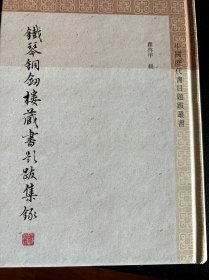 中國歷代書目題跋叢書
瞿良士 輯
鐵琴銅劍樓藏書題跋集錄